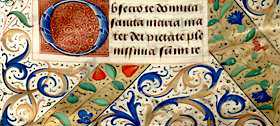 Obsecro te domina
sancta maria ma
ter dei pietate ple
nissima summi re